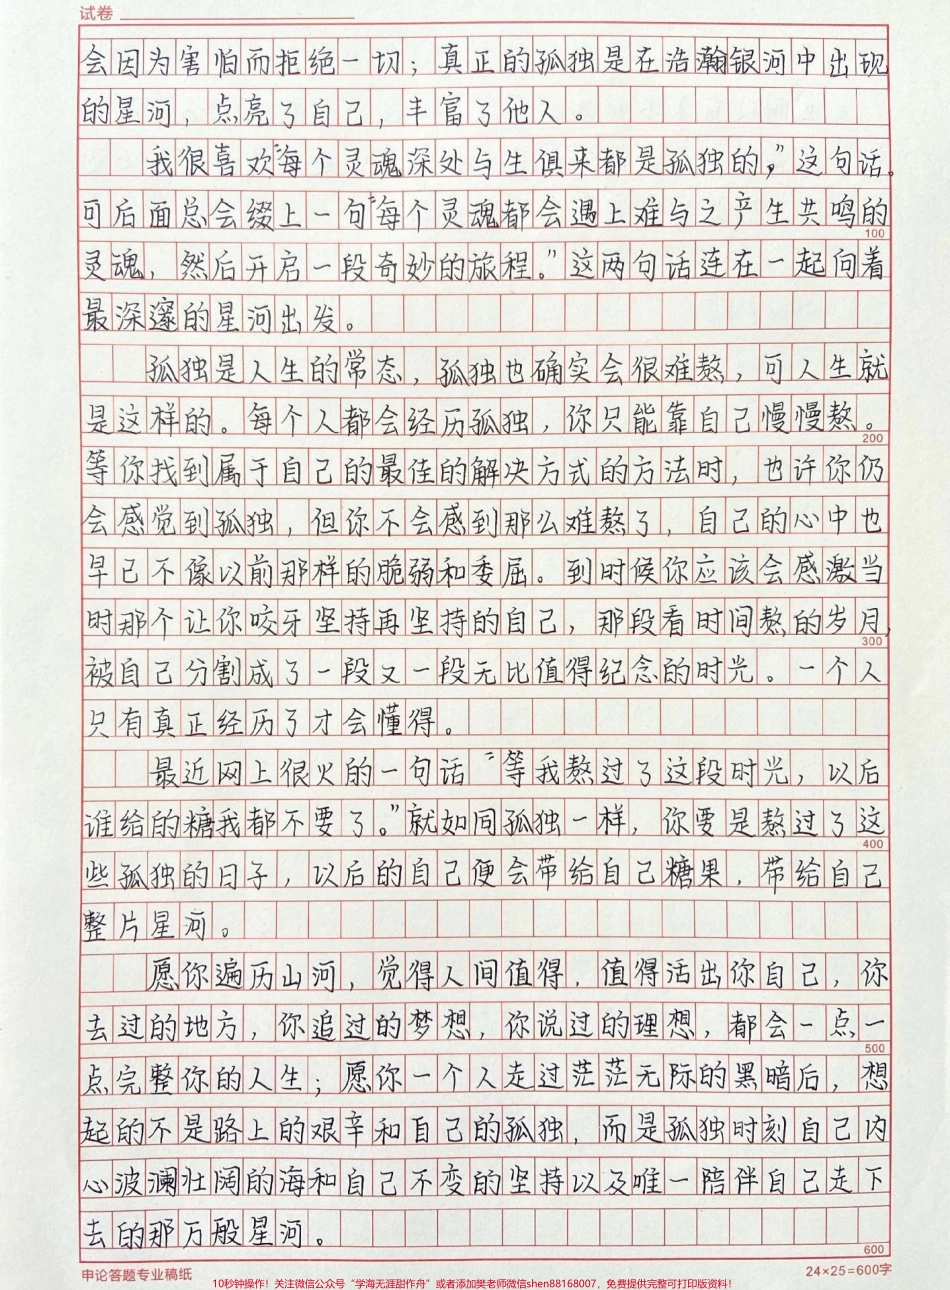 试卷
会因为害怕而拒绝一切；真正的孤独是在浩瀚银河中出现
的星河，点亮了自己，丰富了他人。
我很喜欢“每个灵魂深处与生俱来都是孤独的，”这句话。
可后面总会缀上一句“每个灵魂都会遇上难与之产生共鸣的
100
灵魂，然后开启一段奇妙的旅程。”这两句话连在一起向着
最深邃的星河出发。
孤独是人生的常态，孤独也确实会很难熬，可人生就
是这样的。每个人都会经历孤独，你只能靠自己慢慢熬。
200
等你找到属于自己的最佳的解决方式的方法时，也许你仍
会感觉到孤独，但你不会感到那么难熬了，自己的心中也
早已不像以前那样的脆弱和委屈。到时候你应该会感激当
时那个让你咬牙坚持再坚持的自己，那段看时间熬的岁月，
300
被自己分割成了一段又一段无比值得纪念的时光。一个人
只有真正经历了才会懂得。
最近网上很火的一句话“等我熬过了这段时光，以后
谁给的糖我都不要了。”就如同孤独一样，你要是熬过了这
400
些孤独的日子，以后的自己便会带给自己糖果，带给自己
整片星河。
愿你遍历山河，觉得人间值得，值得活出你自己，你
去过的地方，你追过的梦想，你说过的理想，都会一点一
500
点完整你的人生；愿你一个人走过茫茫无际的黑暗后，想
起的不是路上的艰辛和自己的孤独，而是孤独时刻自己内
心波澜壮阔的海和自己不变的坚持以及唯一陪伴自己走下
去的那万般星河。
600
申论答题专业稿纸
24×25=600字
10秒钟操作！关注微信公众号“学海无涯甜作舟”或者添加樊老师微信shen88168007，免费提供完整可打印版资料！